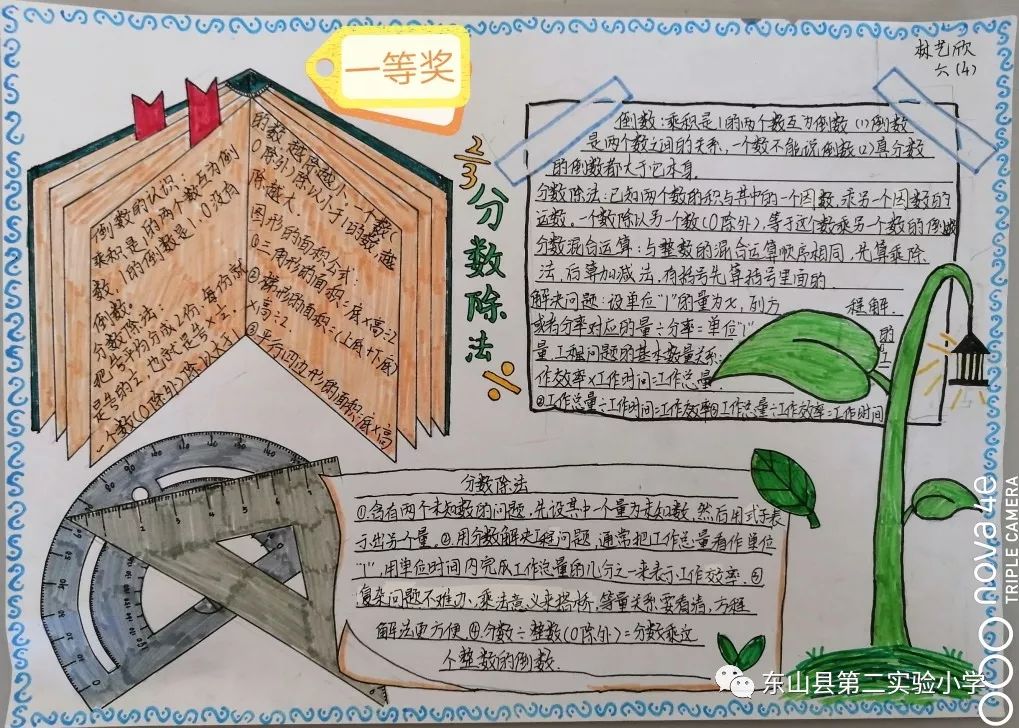 一等奖
林艺欣
六(4)
2/3
分数除法
÷
倒数的认识：
乘积是1的两个数互为倒
数、1的倒数是1，0没有
倒数。
分数除法。
把
平均分成2份，每份就
是
的
，也就是
一个数(0除外)除以大于1
的数，越除越小，一个数(
0除外)除以小于1的数，越
除越大.
图形的面积公式：
①三角形的面积=底×高÷2
②梯形的面积=(上底+下底)
×高÷2.
③平行四边形的面积:底×高
倒数：乘积是1的两个数互为倒数 (1)倒数
是两个数之间的关系，一个数不能说倒数(2)真分数
的倒数都大于它本身.
分数除法：已知两个数的积与其中的一个因数，求另一个因数的
运数。一个数除以另一个数(0除外)，等于这个数乘另一个数的倒数
分数混合运算：与整数的混合运算顺序相同，先算乘除
法，后算加减法，有括号先算括号里面的.
解决问题：设单位"1"的量为x，列方 程解.
或者分率对应的量÷分率=单位"1" 的
量，工程问题的基本数量关系:
作效率×工作时间=工作总量
②工作总量÷工作时间=工作效率③工作总量÷工作效率=工作时间
分数除法
①含有两个未知数的问题，先设其中一个量为未知数，然后用式子表
示出另个量。②用分数解决工程问题，通常把工作总量看作单位
"1"，用单位时间内完成工作总量的几分之一来表示工作效率.③
复杂问题不难办，乘法意义来搭桥，等量关系要看清，方程
解法更方便.④分数÷整数(0除外)=分数乘这
个整数的倒数.
东山县第二实验小学
nova4e
TRIPLE CAMERA